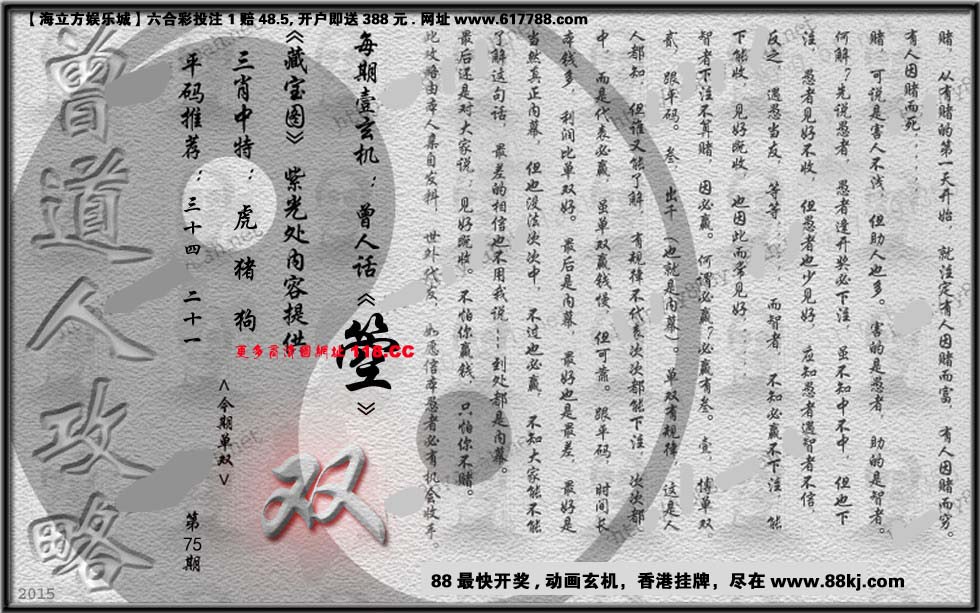 【海立方娱乐城】六合彩投注1赔48.5,开户即送388元.网址www.617788.com
赌，从有赌的第一天开始，就注定有人因赌而富，有人因赌而穷。
有人因赌而死．．．．．．
赌，可说是害人不浅，但助人也多。害的是愚者，助的是智者。
何解？先说愚者，愚者逢开奖必下注，虽不知中不中，但也下
注，愚者见好不收，但愚者也少见好，应知愚者遇智者不信，
反之，遇愚当友，等等．．．．．．而智者，不知必赢不下注，能
下能收，见好既收，也因此而常见好．．．．．．
智者下注不算赌，因必赢。何谓必赢？必赢有叁。壹，博单双，
贰，跟平码。叁，出千（也就是内幕）。单双有规律，这是人
人都知，但谁又能了解，有规律不代表次次都能下注，次次都
中，而是代表必赢，虽单双赢钱慢，但可靠。跟平码，时间长，
本钱多，利润比单双好。最后是内幕，最好也是最差，最好是
当然真正内幕，但也没法次次中，不过也必赢，不知大家能不能
了解这句话，最差的相信也不用我说……到处都是内幕。
最后还是对大家说：见好既收。不怕你赢钱，只怕你不赌。
此攻略由本人集自发料，世外代友，如愿信本愚者必有机会收手。
每期壹玄机：曾人话《
》
《藏宝图》紫光处内容提供
三肖中特：虎 猪 狗
平码推荐：三十四 二十一
更多高清图网址 118.CC
<今期单双>
双
第75期
曾道人攻略
2015
88最快开奖,动画玄机，香港挂牌，尽在www.88kj.com